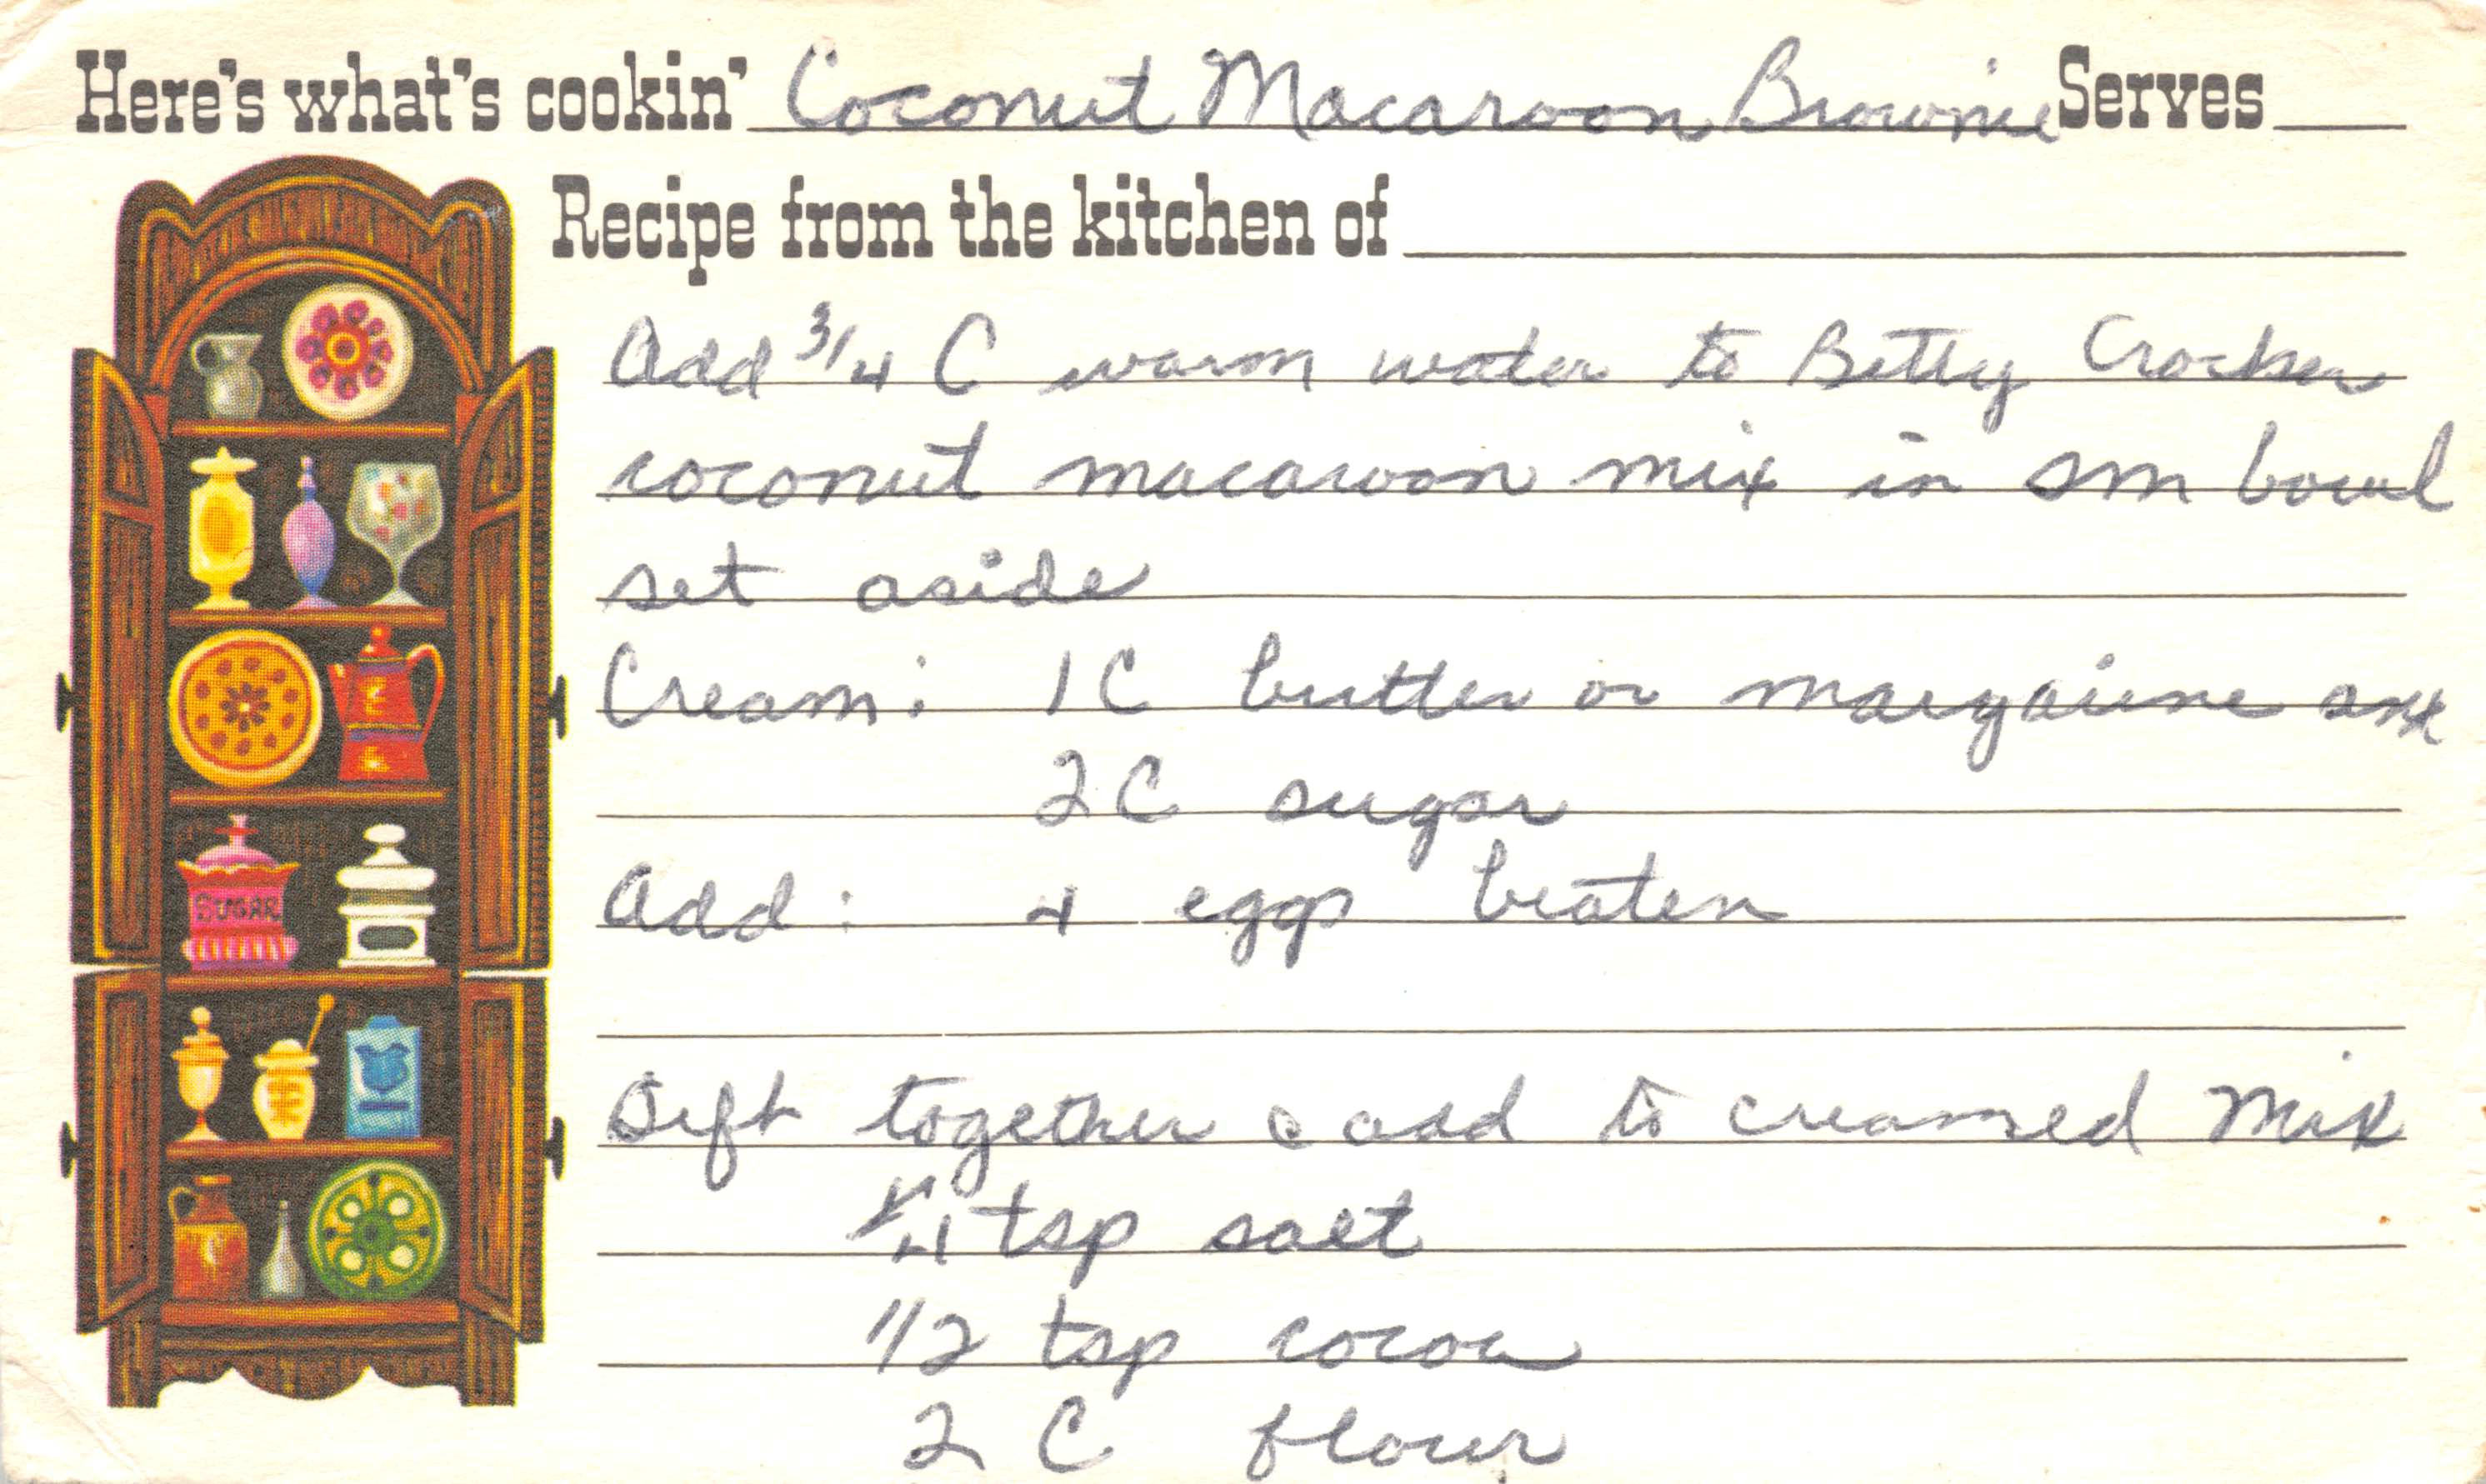 Here's what's cookin' Coconut Macaroon Brownie Serves
Recipe from the kitchen of
Add 3/4 C warm water to Betty Crocker
coconut macaroon mix in sm bowl
set aside
Cream: 1C butter or margarine
2C sugar
Add: 4 eggs beaten
Sift together & add to creamed Mix
1/4 tsp salt
1/2 tsp cocoa
2 C flour
SUGAR